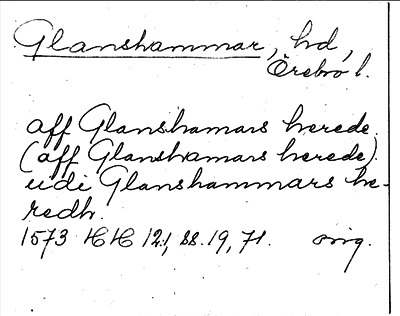 Glanshammar, hd,
Örebro l.
aff Glanshamars herede.
(aff Glanshamars herede).
udi Glanshammars he-
redh.
1573 HH 12:1, ss. 19, 71. orig.